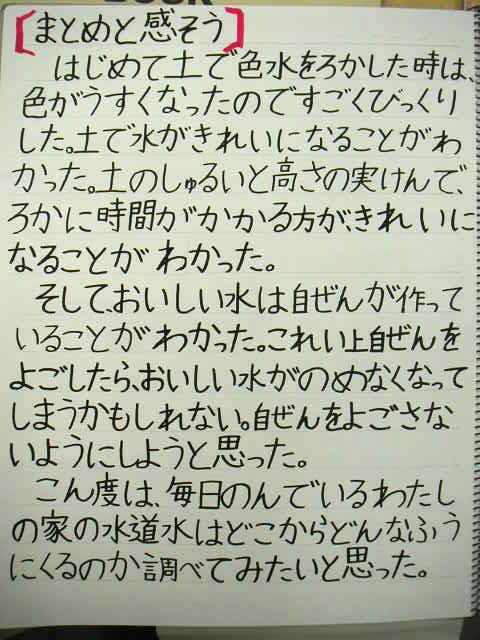 【まとめと感そう】
はじめて土で色水をろかした時は、
色がうすくなったのですごくびっくり
した。土で水がきれいになることがわ
かった。土のしゅるいと高さの実けんで、
ろかに時間がかかる方が、きれいに
なることがわかった。
そして、おいしい水は自ぜんが作って
いることがわかった。これい上自ぜんを
よごしたら、おいしい水がのめなくなって
しまうかもしれない。自ぜんをよごさな
いようにしようと思った。
こん度は、毎日のんでいるわたし
の家の水道水はどこからどんなふう
にくるのか調べてみたいと思った。